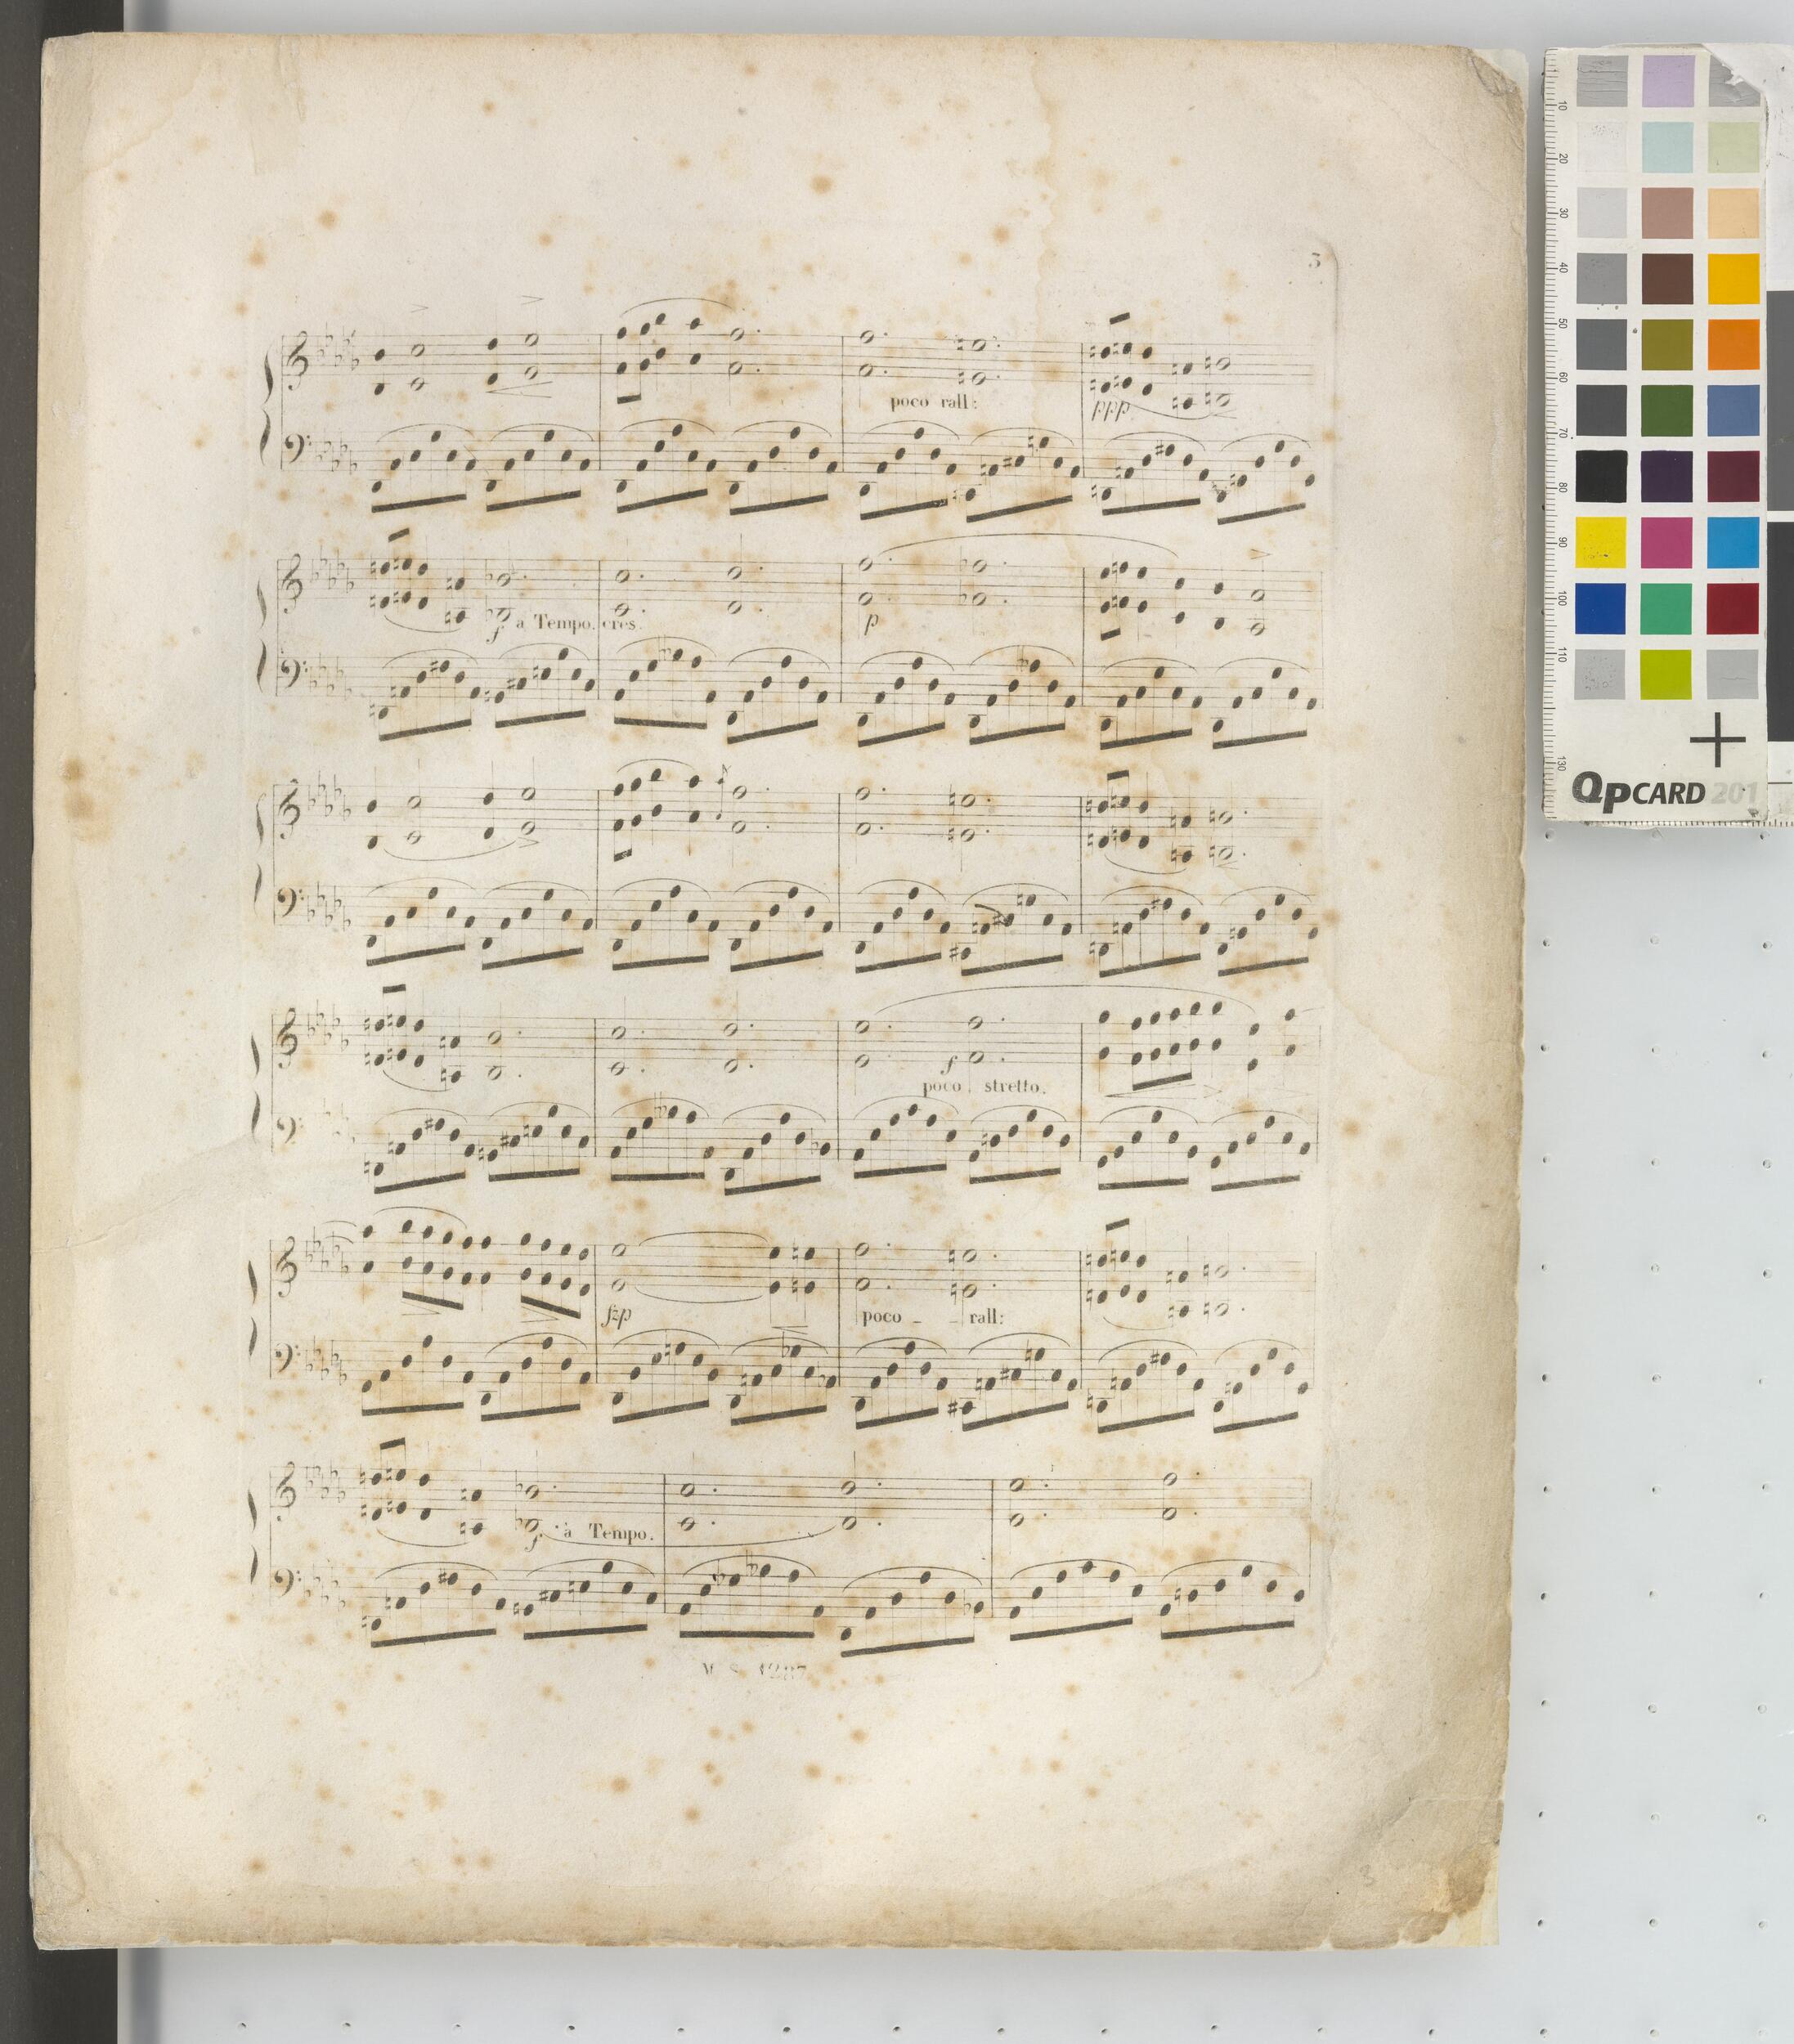 3
poco rall:
ppp
f a Tempo. cres.
p
f
poco stretto.
fzp
poco - - rall:
f à Tempo.
M S 1287
3
10
20
30
40
50
60
70
80
90
100
110
130
QPCARD 201